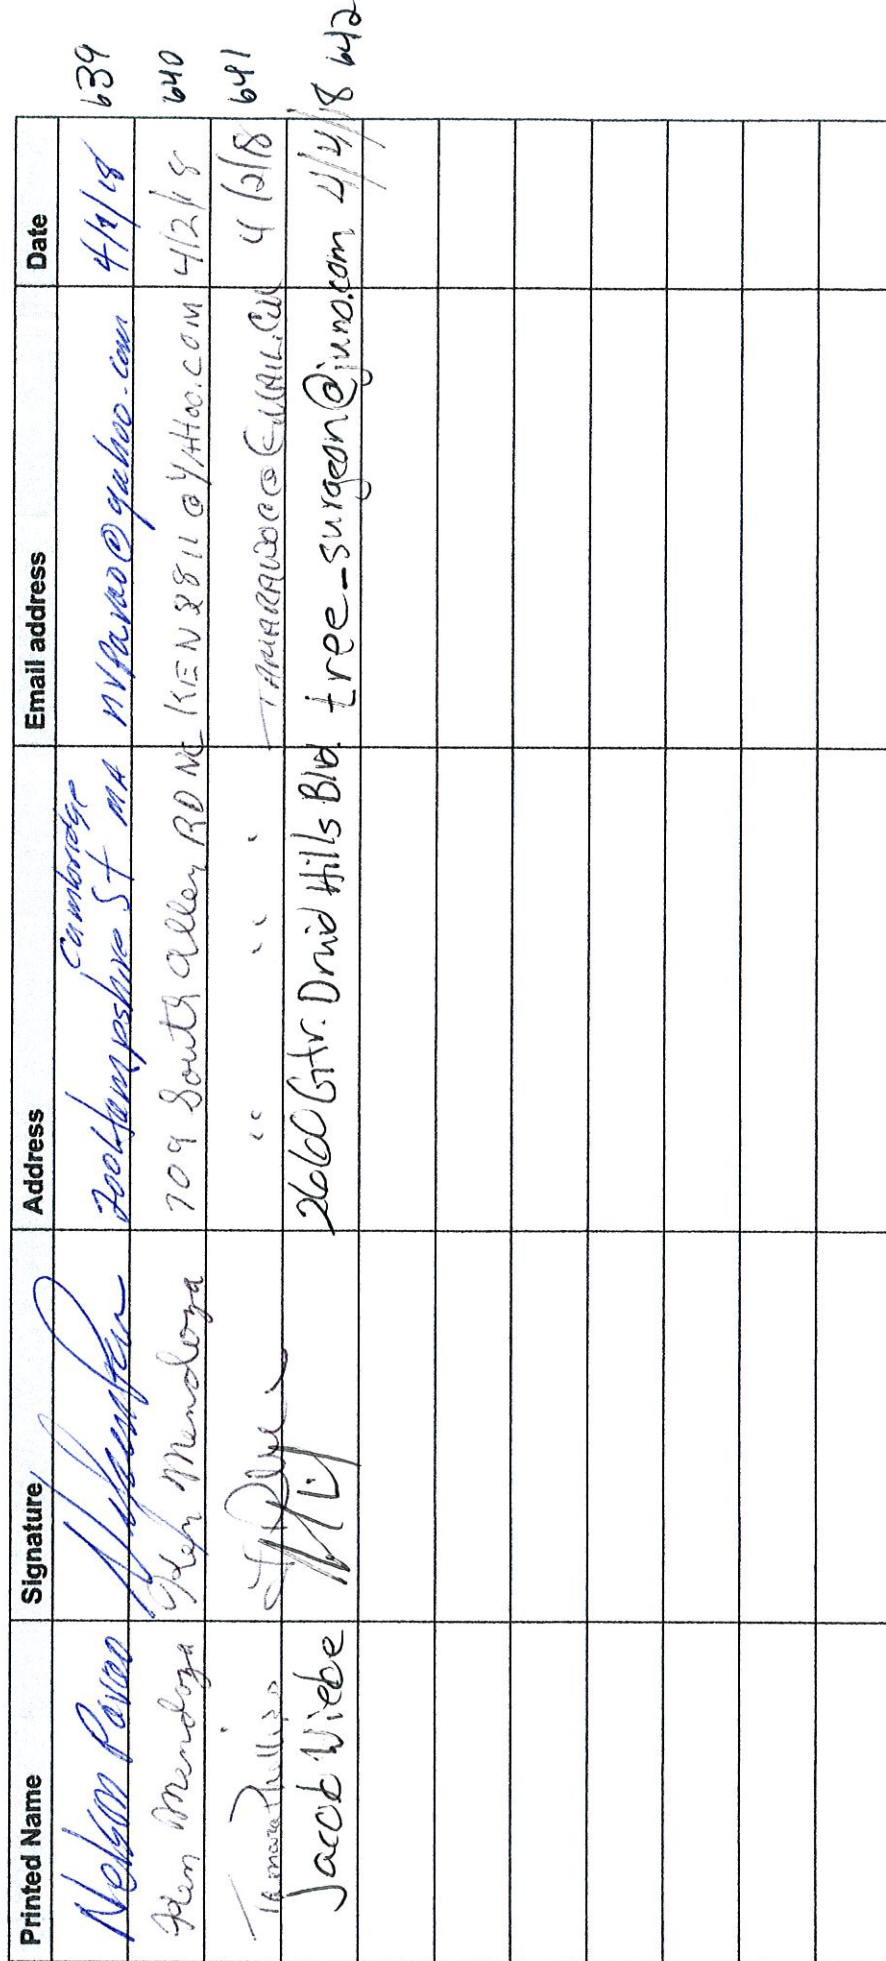 Printed Name Signature Address Email address Date
Nelson 700 Hampshire St Cambridge MA @yahoo.com 4/2/18 639
Ken Mendoza Ken Mendoza 709 South Valley RD NE KEN2811@YAHOO.COM 4/2/18 640
Tamara Phillips " " " 4/2/18 641
Jacob Wiebe 2660 Grtr. Druid Hills Blvd. tree_surgeon@juno.com 4/4/18 642